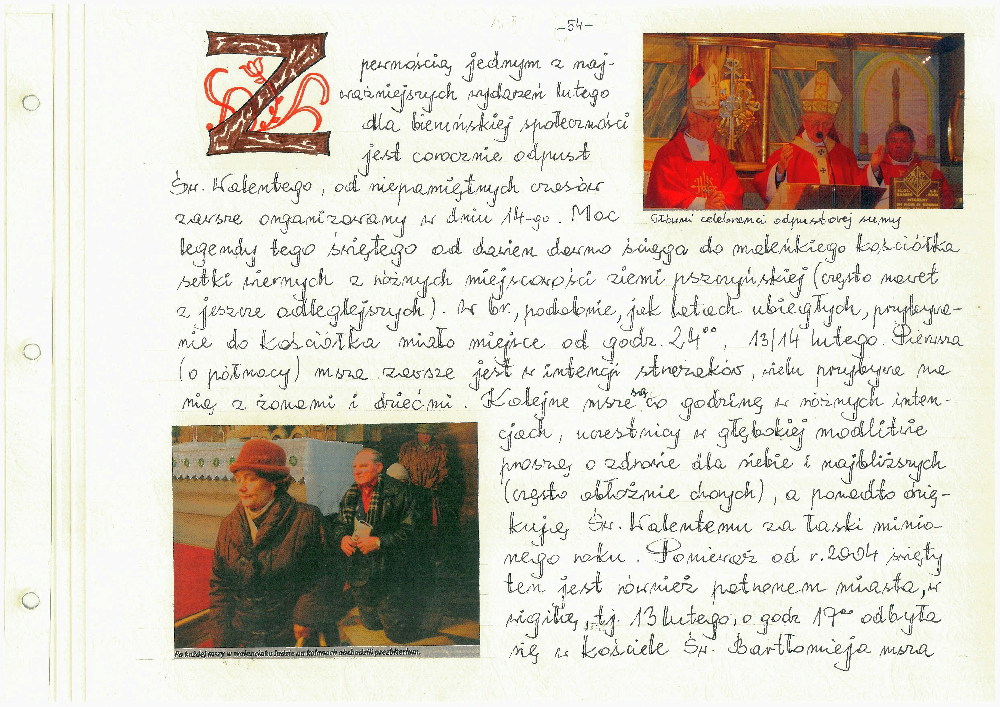 -54-
Z pewnością jednym z naj-
ważniejszych wydarzeń lutego
dla bieruńskiej społeczności
jest corocznie odpust
Św. Walentego, od niepamiętnych czasów
zawsze organizowany w dniu 14-go. Moc
Główni celebranci odpustowej sumy
legendy tego świętego od dawien dawna ściąga do maleńkiego kościółka
setki wiernych z różnych miejscowości ziemi pszczyńskiej (często nawet
z jeszcze odleglejszych). W br., podobnie, jak latach ubiegłych, przybywa-
nie do kościółka miało miejsce od godz. 24⁰⁰, 13/14 lutego. Pierwsza
(o północy) msza zawsze jest w intencji strażaków, wielu przybywa na
nią z żonami i dziećmi. Kolejne msze są co godzinę w różnych inten-
cjach, uczestnicy w głębokiej modlitwie
proszą o zdrowie dla siebie i najbliższych
(często obłożnie chorych), a ponadto dzię-
kują Św. Walentemu za łaski minio-
nego roku. Ponieważ od r. 2004 święty
ten jest również patronem miasta, w
wigilię, tj. 13 lutego, o godz 17⁰⁰ odbyła
się w kościele Św. Bartłomieja msza
Po każdej mszy w walencinku ludzie na kolanach obchodzili prezbiterium.